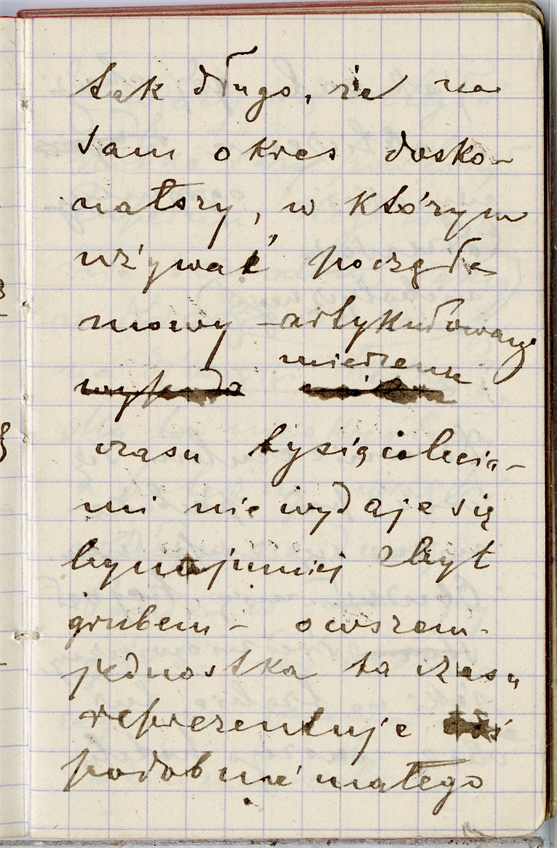 tak długo, że na
sam okres dosko-
natory, w którym
używać począł
mowy artykułowanej
mierzenie
czasu tysiącolecia-
mi nie wydaje się
bynajmniej zbyt
grubem – owszem
jednostka ta czasu
reprezentuje
podobnie małego